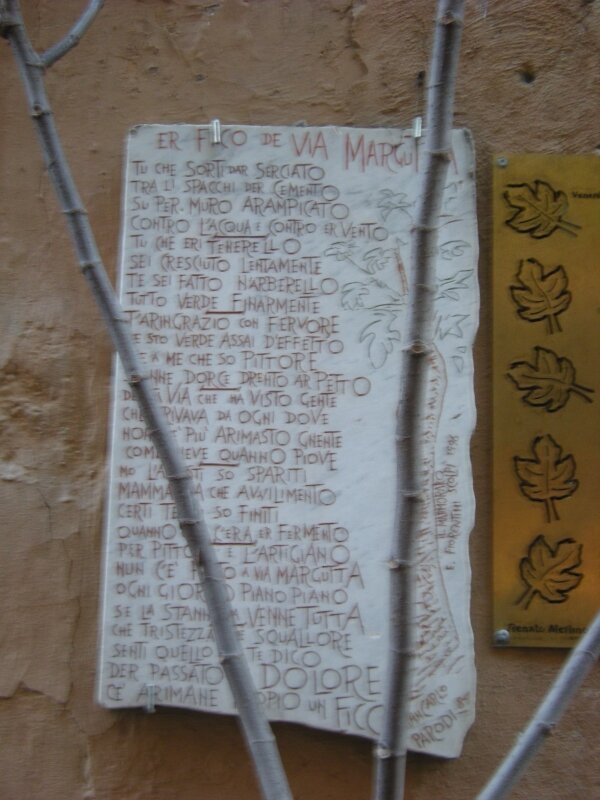 ER FICO DE VIA MARGUTTA
TU CHE SORTI DAR SERCIATO
TRA LI SPACCHI DER CEMENTO
SU PER MURO ARAMPICATO
CONTRO L'ACQUA E CONTRO ER VENTO
TU CHE ERI TENERELLO
SEI CRESCIUTO LENTAMENTE
TE SEI FATTO N'ARBERELLO
TUTTO VERDE FINARMENTE
T'ARINGRAZIO CON FERVORE
E STO VERDE ASSAI D'EFFETTO
E A ME CHE SO PITTORE
DORCE DRENTO AR PETTO
VIA CHE HA VISTO GENTE
CHE RIVAVA DA OGNI DOVE
NON C'È PIÙ ARIMASTO GNENTE
COME NEVE QUANNO PIOVE
SO SPARITI
MAMMA MIA CHE AVVILIMENTO
CERTI TEMPI SO FINITI
QUANNO C'ERA ER FERMENTO
PER PITTORE E L'ARTIGIANO
NUN C'È POSTO A VIA MARGUTTA
OGNI GIORNO PIANO PIANO
SE LA STANNO A VENNE TUTTA
CHE TRISTEZZA CHE SQUALLORE
SENTI QUELLO CHE TE DICO
DER PASSATO DOLORE
CE ARIMANE PROPIO UN FICO
GIANCARLO
PARODI 85
E. FIORENTINI SCOLPÌ
Renato